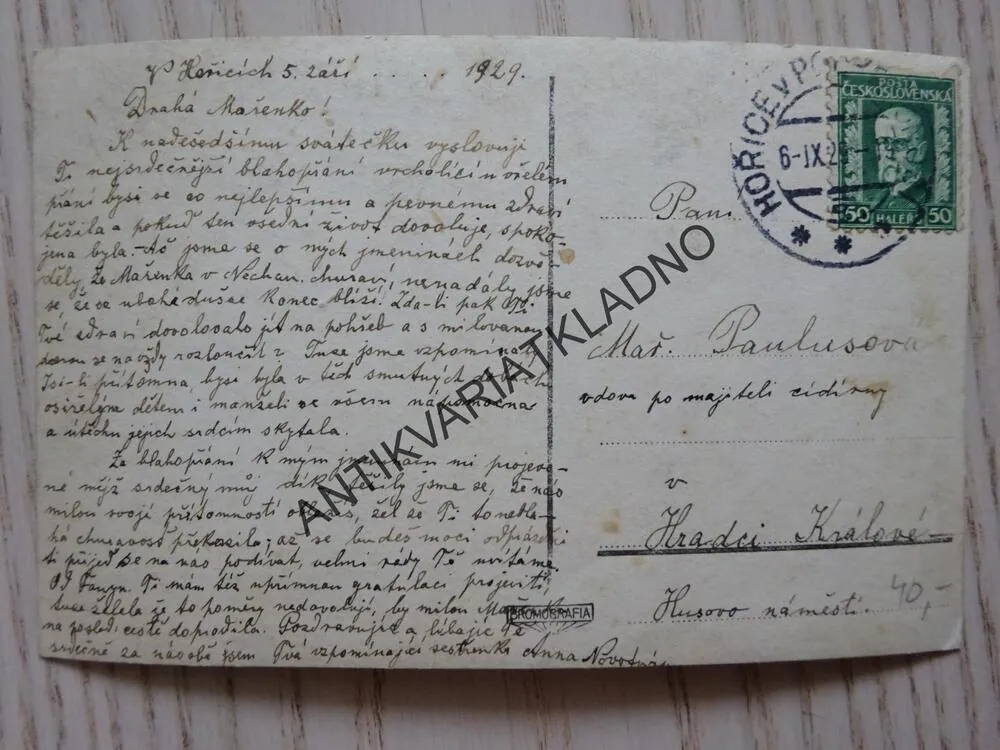 V Hořicích 5. září . . . . . 1929.
Drahá Mařenko!
K nadešedšímu svátečku vyslovuji
Ti nejsrdečnější blahopřání vrcholící u vřelém
přání bysi se co nejlepšímu a pevnému zdraví
těšila a pokud ten všední život dovoluje, spoko-
jena byla. Až jsme se o mých jmeninách dozvě-
děly, že Mařenka v Nechan. churaví, nenadály jsme
se, že se ubohé dušae konec blíží. Zda-li pak Ti
Tvé zdraví dovolovalo jít na pohřeb a s milovanou
se navždy rozloučit? Tuze jsme vzpomínaly
Jsi-li přítomna, bysi byla v těch smutných
osiřelým dětem i manželi ve všem nápomocna
a útěchu jejich srdcím skytala.
Za blahopřání k mým jmeninám mi projeve-
né měj srdečný můj dík. Těšily jsme se, že nás
milou svojí přítomností žel že Ti to neble-
há churavost překazila; až se budeš moci
ti přijeď se na nás podívat, velmi rády Tě uvítáme.
Od Fanyn. Ti mám též upřímnou gratulaci projeviti,
tuze želela že to poměry nedovolují, by milou
na posled. cestě doprodila. Pozdravujíc a líbajíc Tě
srdečně za nás obě jsem Tvá vzpomínající sestřenka Anna Novotná
HOŘICE V PO
6-IX.2
POŠTA
ČESKOSLOVENSKÁ
50 HALÉŘ 50
Paní
Mař. Paulusová
vdova po majiteli cídírny
v
Hradci Králové
Husovo náměstí.
40,-
BROMOGRAFIA
ANTIKVARIATKLADNO